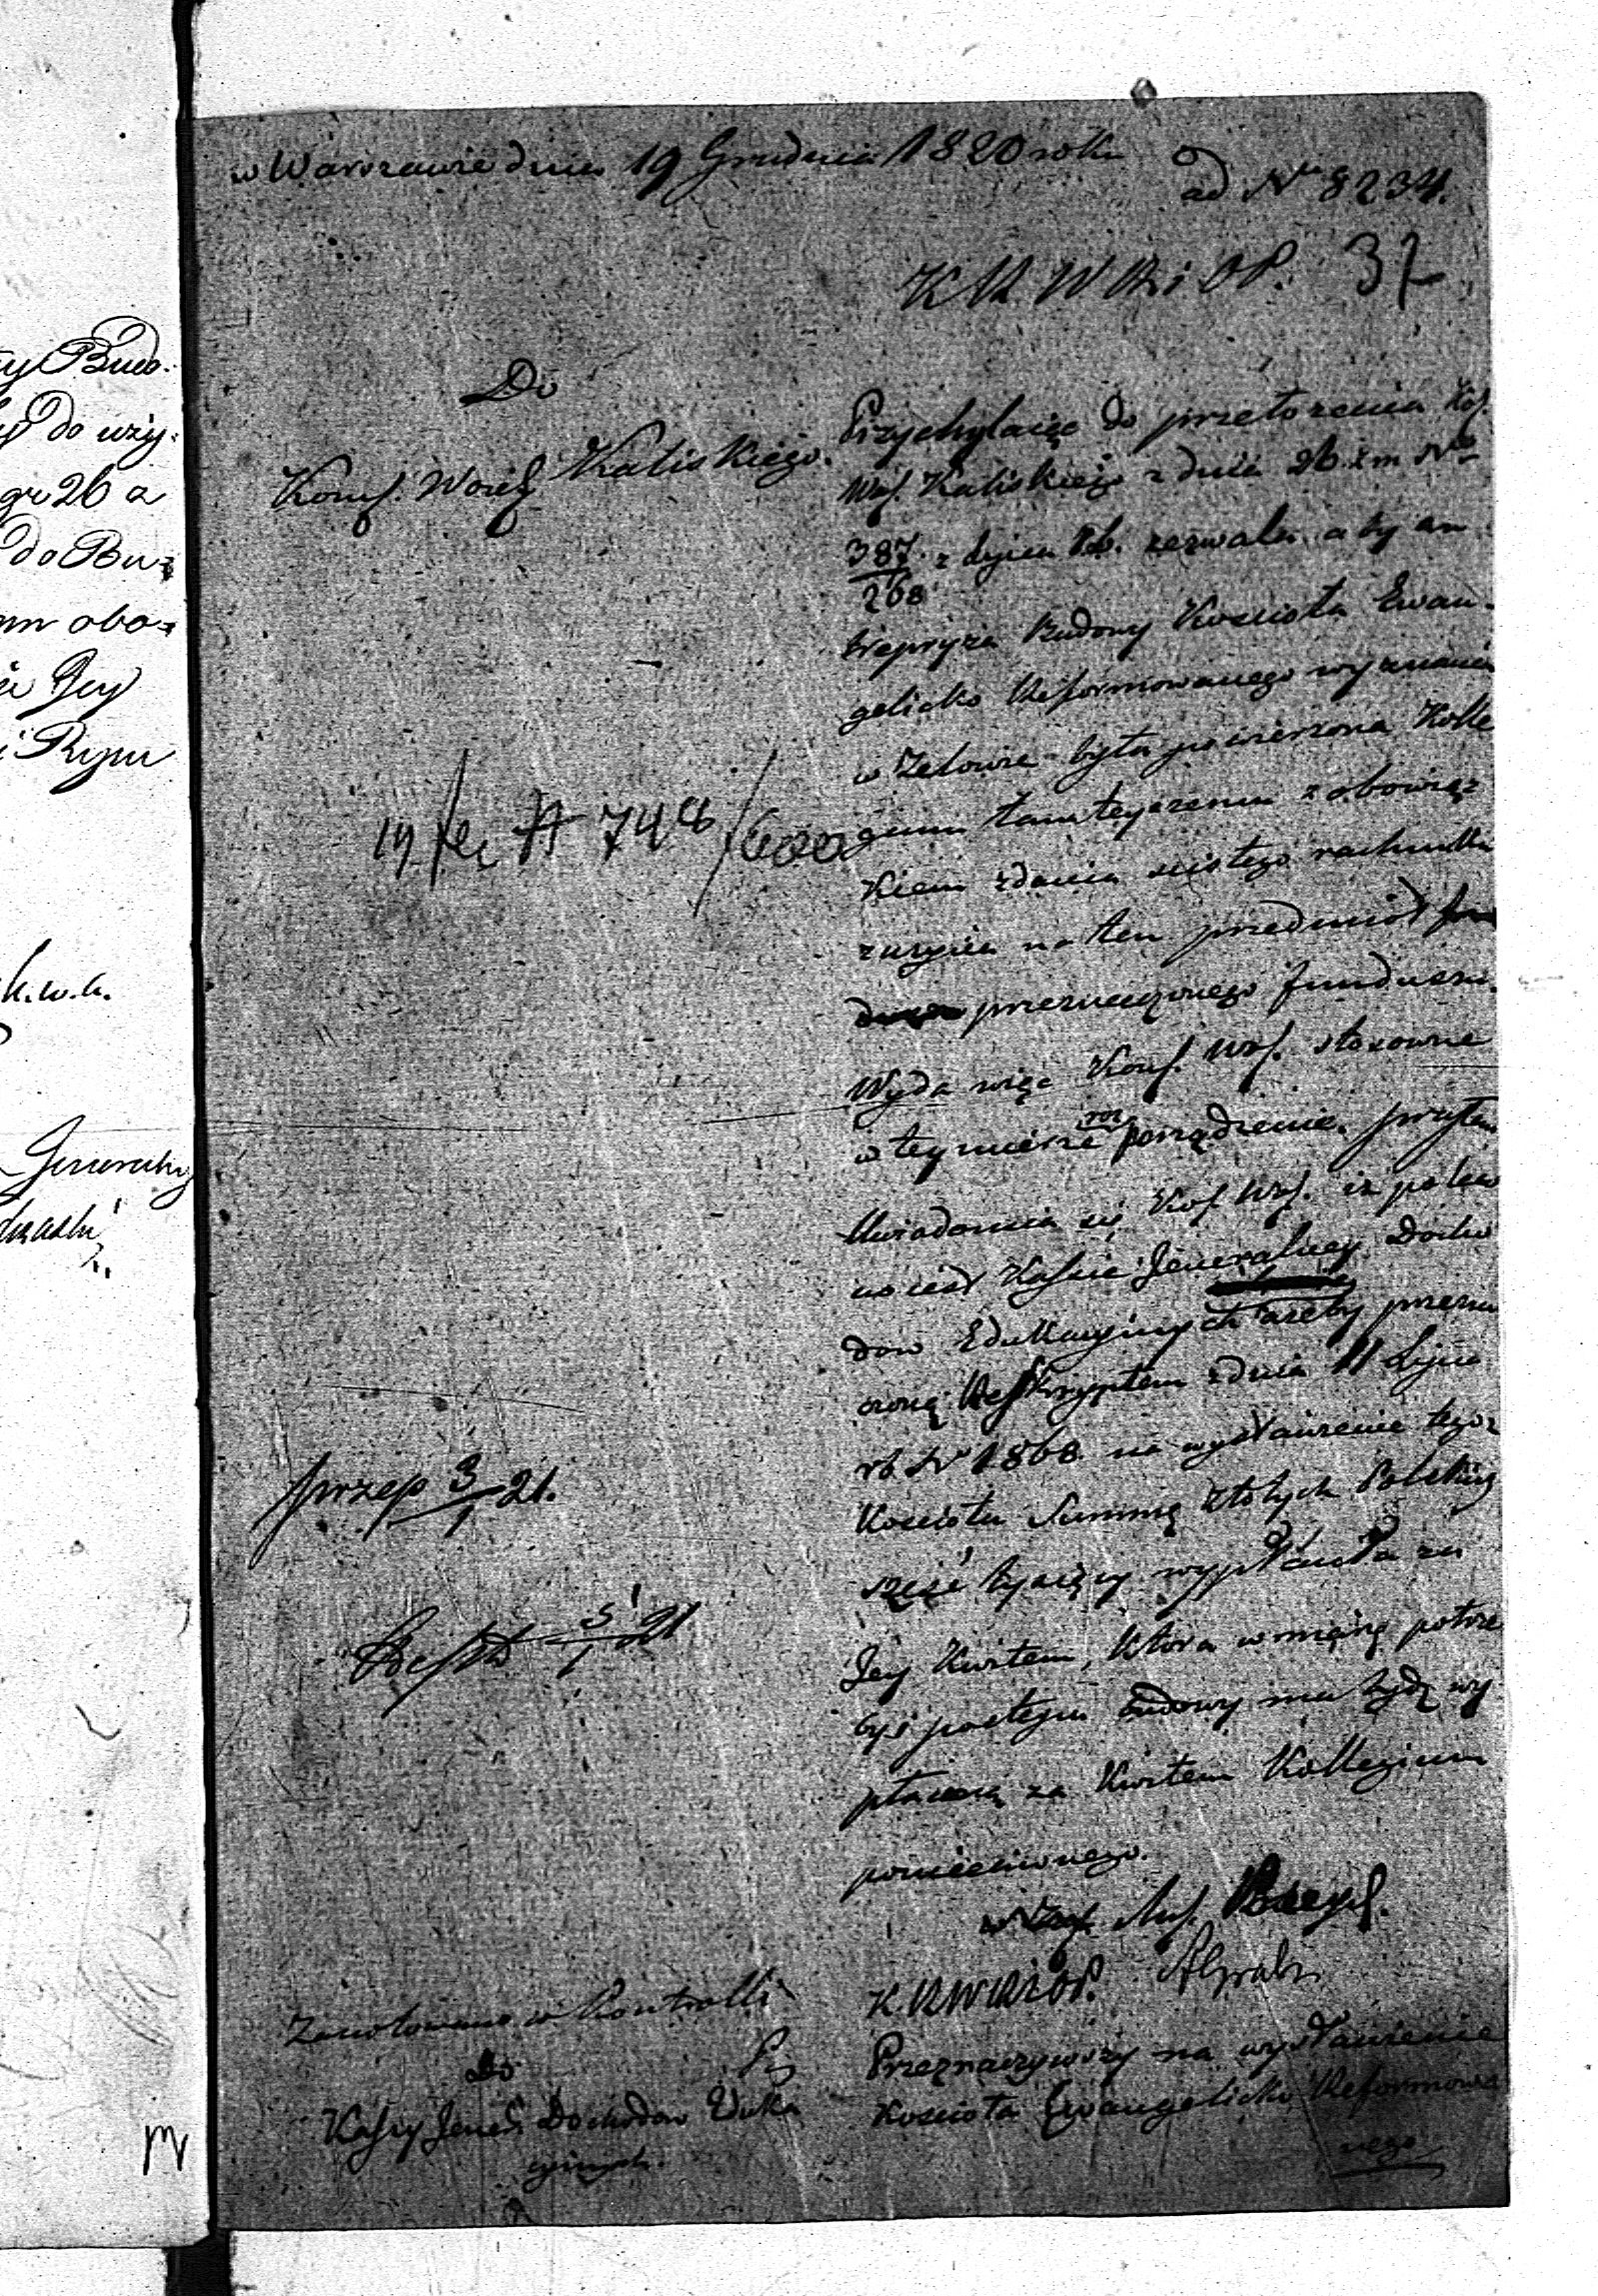 w Warszawie dnia 19 Grudnia 1820 roku
ad Nr 8234.
K R W R i O P. 37
Do
Komſ. Woieſ Kaliskiego.
Przychylaiąc do przełożenia Koſ.
Woſ. Kaliskiego z dnia 26 z m No
387/268 z Lipca rb. zezwala aby an
trepryza Budowy Kosciola Ewan-
gelicko Reformowanego wyznania
w Zelowie była powierzona Kolle
gium tamteyszemu z obowiąz
kiem zdania scisłego rachunku
z uzycia na ten przedmiot
przeznaczonego funduszu.
Wyda więc Komſ. Woſ. stosowne
w tey mierze rozporządzenie, przytem
Uwiadomia się Koſ. Woſ. iz poleco
no iest Kaſsie Jeneralney Docho
dow Edukacyinych azeby przezna
czoną Reſkryptem z dnia 11 Lipca
rb Nr 1868 na wystawienie tegoz
Kosciołu Summę Złotych Polskich
sześć tysięcy wypłaciła za
Jey Kwitem, ktora w miarę potrze
by i postępu budowy ma bydz wy
płaconą za Kwitem Kollegium
pomienionego.
19/12 A 748/6000
przep 3/1 21.
5/1 21
K. R W R i O P.
Zanotowano w Kontrolli
Do
Kaſsy Jener. Dochodow Eduka
cyinych.
Przeznaczywszy na wystawienie
Kosciola Ewangelicko Reformowa
nego
ty Budo-
do uzy-
gr 26 a
do Bu-
obo-
Jey
i Rypu
k.w.k.
Jeneralny